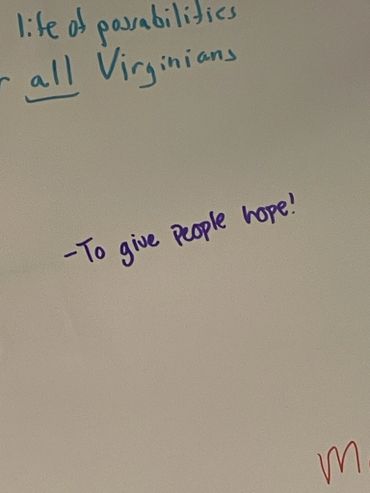 life of possabilities
all Virginians
-To give People hope!